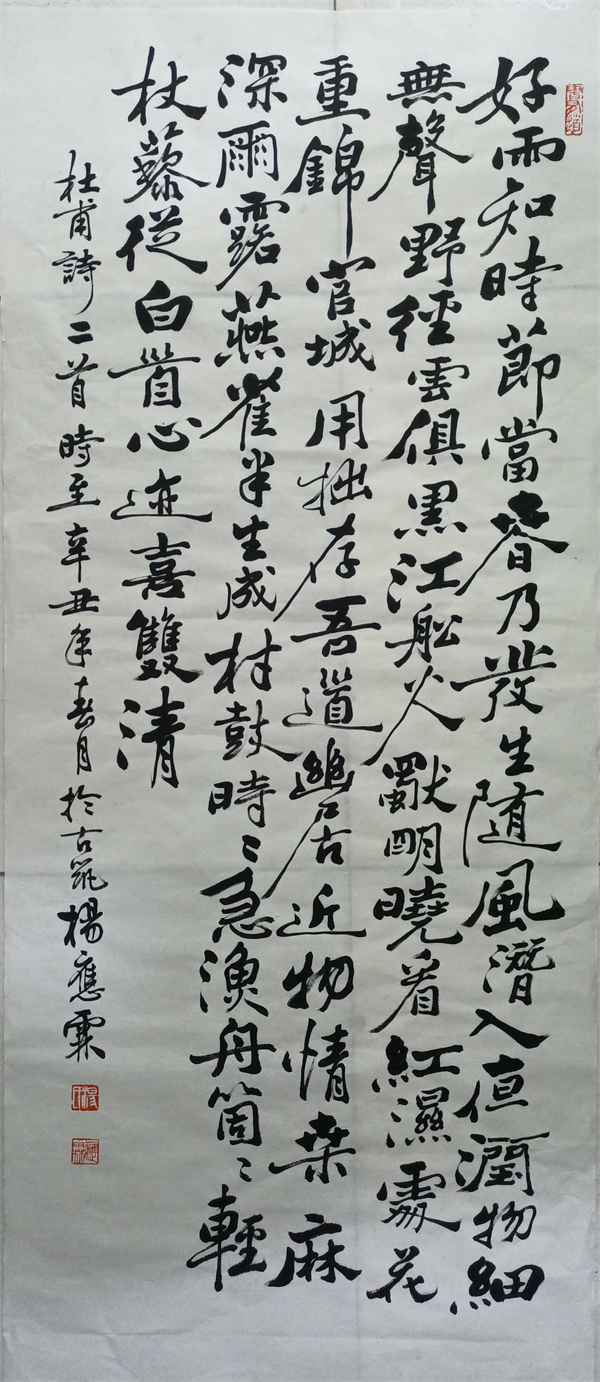 好雨知時節當春乃發生隨風潛入但潤物細
無聲野徑雲俱黑江船火獨明曉看紅濕處花
重錦官城用拙存吾道幽居近物情桑麻
深爾露燕雀半生成村鼓時〻急漁舟箇〻輕
杖藜從白首心迹喜雙清
杜甫詩二首時至辛丑年春月於古筑楊應霖